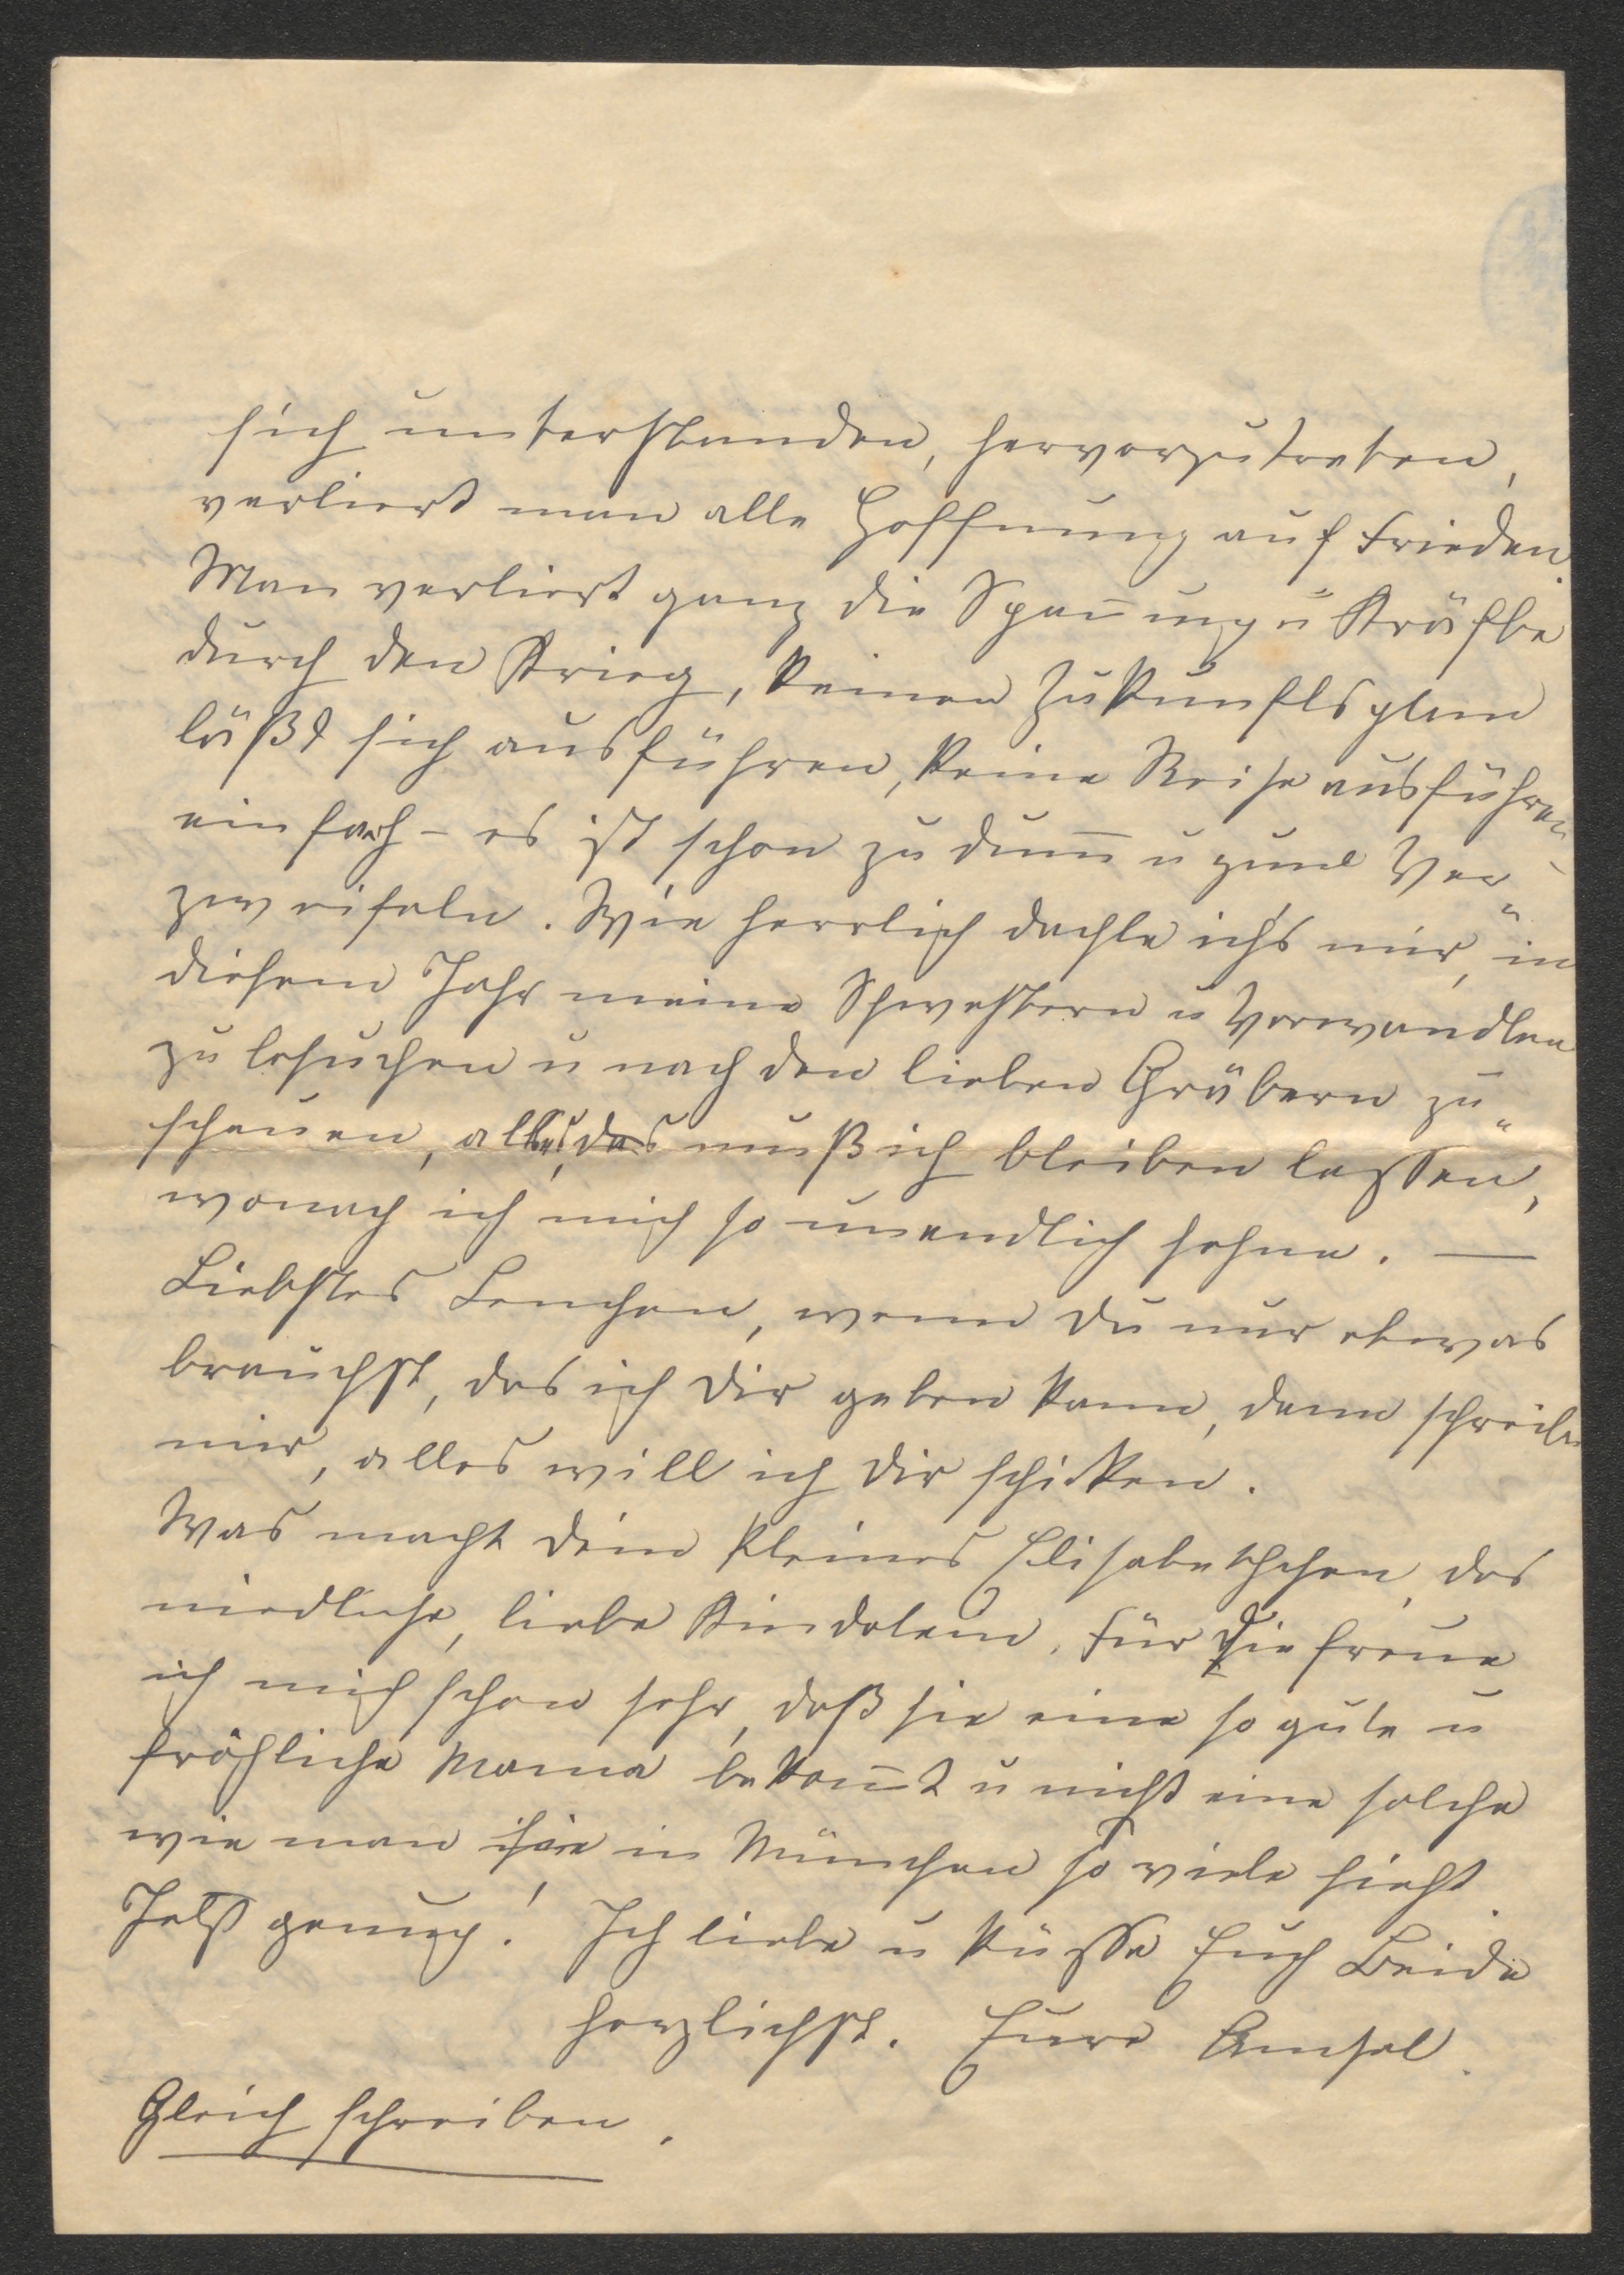 sich unterstanden, hervorzutreten,
verliert man alle Hoffnung auf Frieden.
Man verliert ganz die Span̅ung u Kräfte
durch den Krieg, keinen Zukunftsplan
läßt sich ausführen, keine Reise ausführen
einfach – es ist schon zu dum̅ u zum Ver-
zweifeln. Wie herrlich dachte ich's mir, in
diesem Jahr meine Schwestern u Verwandten
zu besuchen u nach den lieben Gräbern zu
schauen, alles, das muß ich bleiben lassen,
wonach ich mich so unendlich sehne. —
Liebstes Lenchen, wenn Du nur etwas
brauchst, das ich Dir geben kann, dann schreibe
mir, alles will ich Dir schicken.
Was macht Dein kleines Elisabethchen, das
niedliche, liebe Kindelein. Für Sie freue
ich mich schon sehr, daß sie eine so gute u
fröhliche Mama bekom̅t u nicht eine solche
wie man hie in München so viele sieht.
Jetzt genug! Ich liebe u küsse Euch Beide
herzlichst. Eure Amsel.
Gleich schreiben.